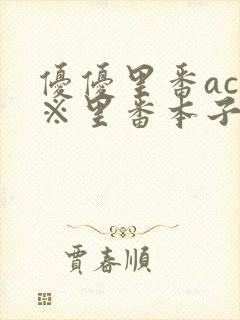 優優里番ac
※里番本子
賈春順